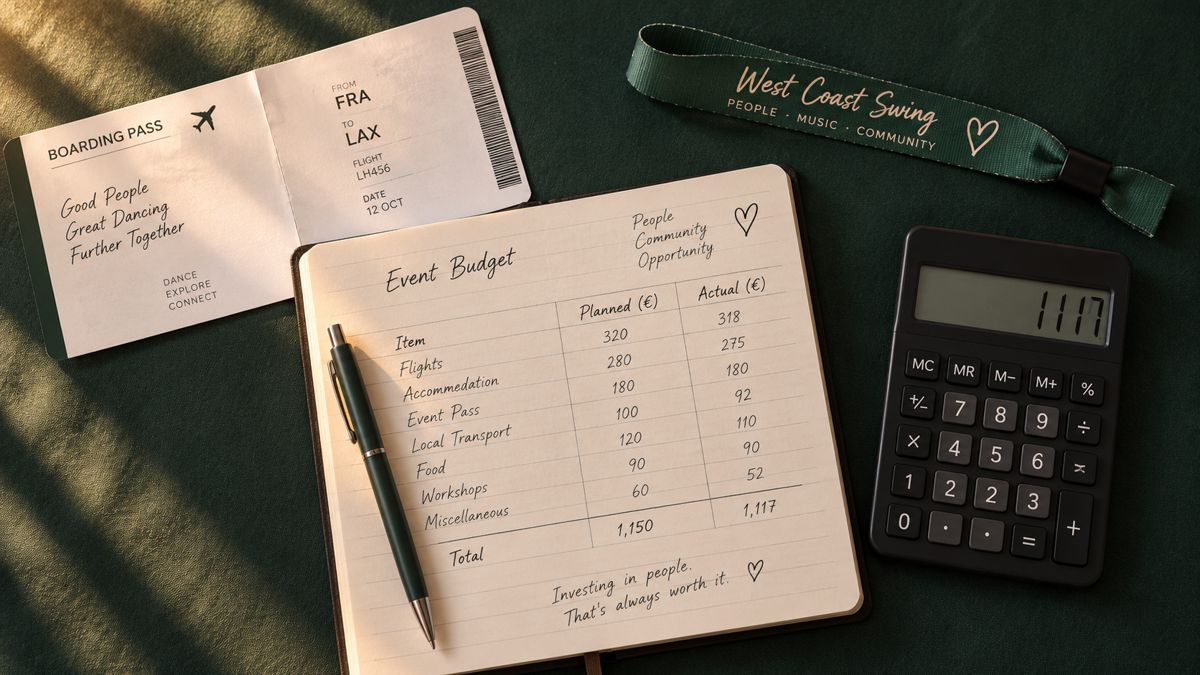 BOARDING PASS
Good People
Great Dancing
Further Together
DANCE
EXPLORE
CONNECT
FROM
FRA
TO
LAX
FLIGHT
LH456
DATE
12 OCT
West Coast Swing
PEOPLE · MUSIC · COMMUNITY
Event Budget
People
Community
Opportunity
Item Planned (€) Actual (€)
Flights 320 318
Accommedation 280 275
Event Pass 180 180
Local Transport 100 92
Food 120 110
Workshops 90 90
Miscellaneous 60 52
Total 1,150 1,117
Investing in people.
That's always worth it.
1117
MC MR M− M+ %
+/− 7 8 9 ÷
× 4 5 6
1 2 2 3
0 · · = +